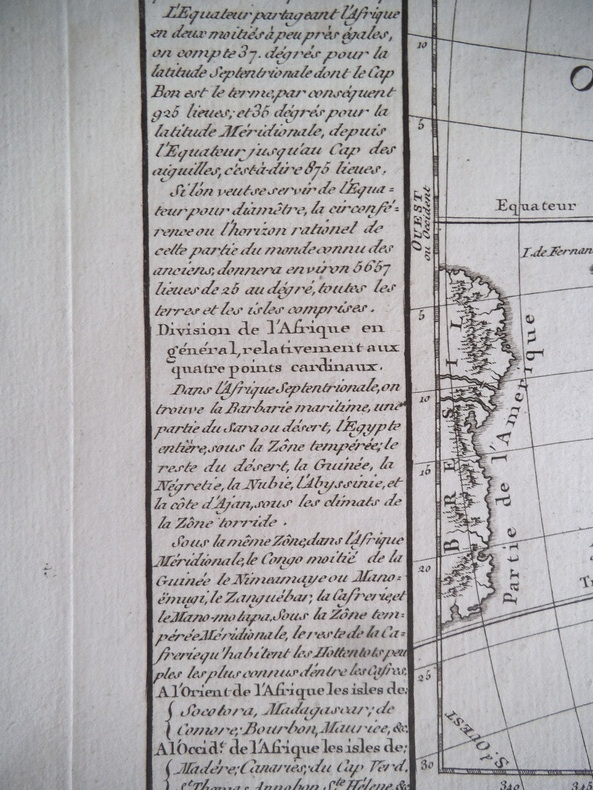 L'Equateur partageant l'Afrique
en deux moitiés à peu près égales,
on compte 37. dégrés pour la
latitude Septentrionale dont le Cap
Bon est le terme, par conséquent
925 lieues; et 35 dégrés pour la
latitude Méridionale, depuis
l'Equateur jusqu'au Cap des
aiguilles, c'est-à-dire 875 lieues.
Si l'on veut se servir de l'Equa=
teur pour diamêtre, la circonfé=
rence ou l'horizon rationel de
cette partie du monde connu des
anciens, donnera environ 5657
lieues de 25 au dégré, toutes les
terres et les isles comprises.
Division de l'Afrique en
général, relativement aux
quatre points cardinaux.
Dans l'Afrique Septentrionale, on
trouve la Barbarie maritime, une
partie du Sara ou désert, l'Egypte
entière, sous la Zône tempérée; le
reste du désert, la Guinée, la
Négretie, la Nubie, l'Abyssinie, et
la côte d'Ajan, sous les climats de
la Zône torride.
Sous la même Zône, dans l'Afrique
Méridionale, le Congo moitié de la
Guinée le Nimeamaye ou Mano=
émugi, le Zanguébar, la Cafrerie, et
le Mano-motapa. Sous la Zône tem=
pérée Méridionale, le reste de la Ca=
frerie qu'habitent les Hottentots peu
ples les plus connus d'entre les Cafres.
A l'Orient de l'Afrique les isles de;
Socotora, Madagascar; de
Comore; Bourbon, Maurice, &c.
A l'Occid.t de l'Afrique les isles de;
Madère; Canaries; du Cap Verd,
S.t Thomas, Annobon, S.te Hélène &c
10
5
OUEST
ou Occident
Equateur
I. de Fernan
O
5
10
15
20
25
30
BRESIL
Partie de l'Amerique
S. OUEST
340
345